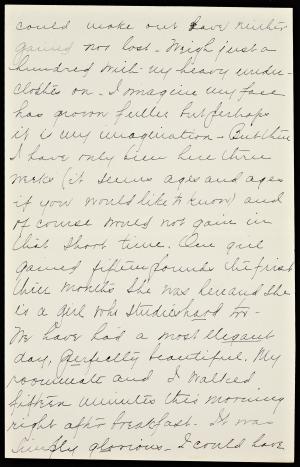 could make out have neither
gained nor lost - Weigh just a
hundred with my heavy under-
clothes on - I imagine my face
has grown fuller but perhaps
it is my imagination - But then
I have only been here three
weeks (it seems ages and ages
if you would like to know) and
of course would not gain in
that short time. One girl
gained fifteen pounds the first
three months she was here and she
is a girl who studies hard too -
We have had a most elegant
day, perfectly beautiful. My
roommate and I walked
fifteen minutes this morning
right after breakfast. It was
simply glorious - I could have